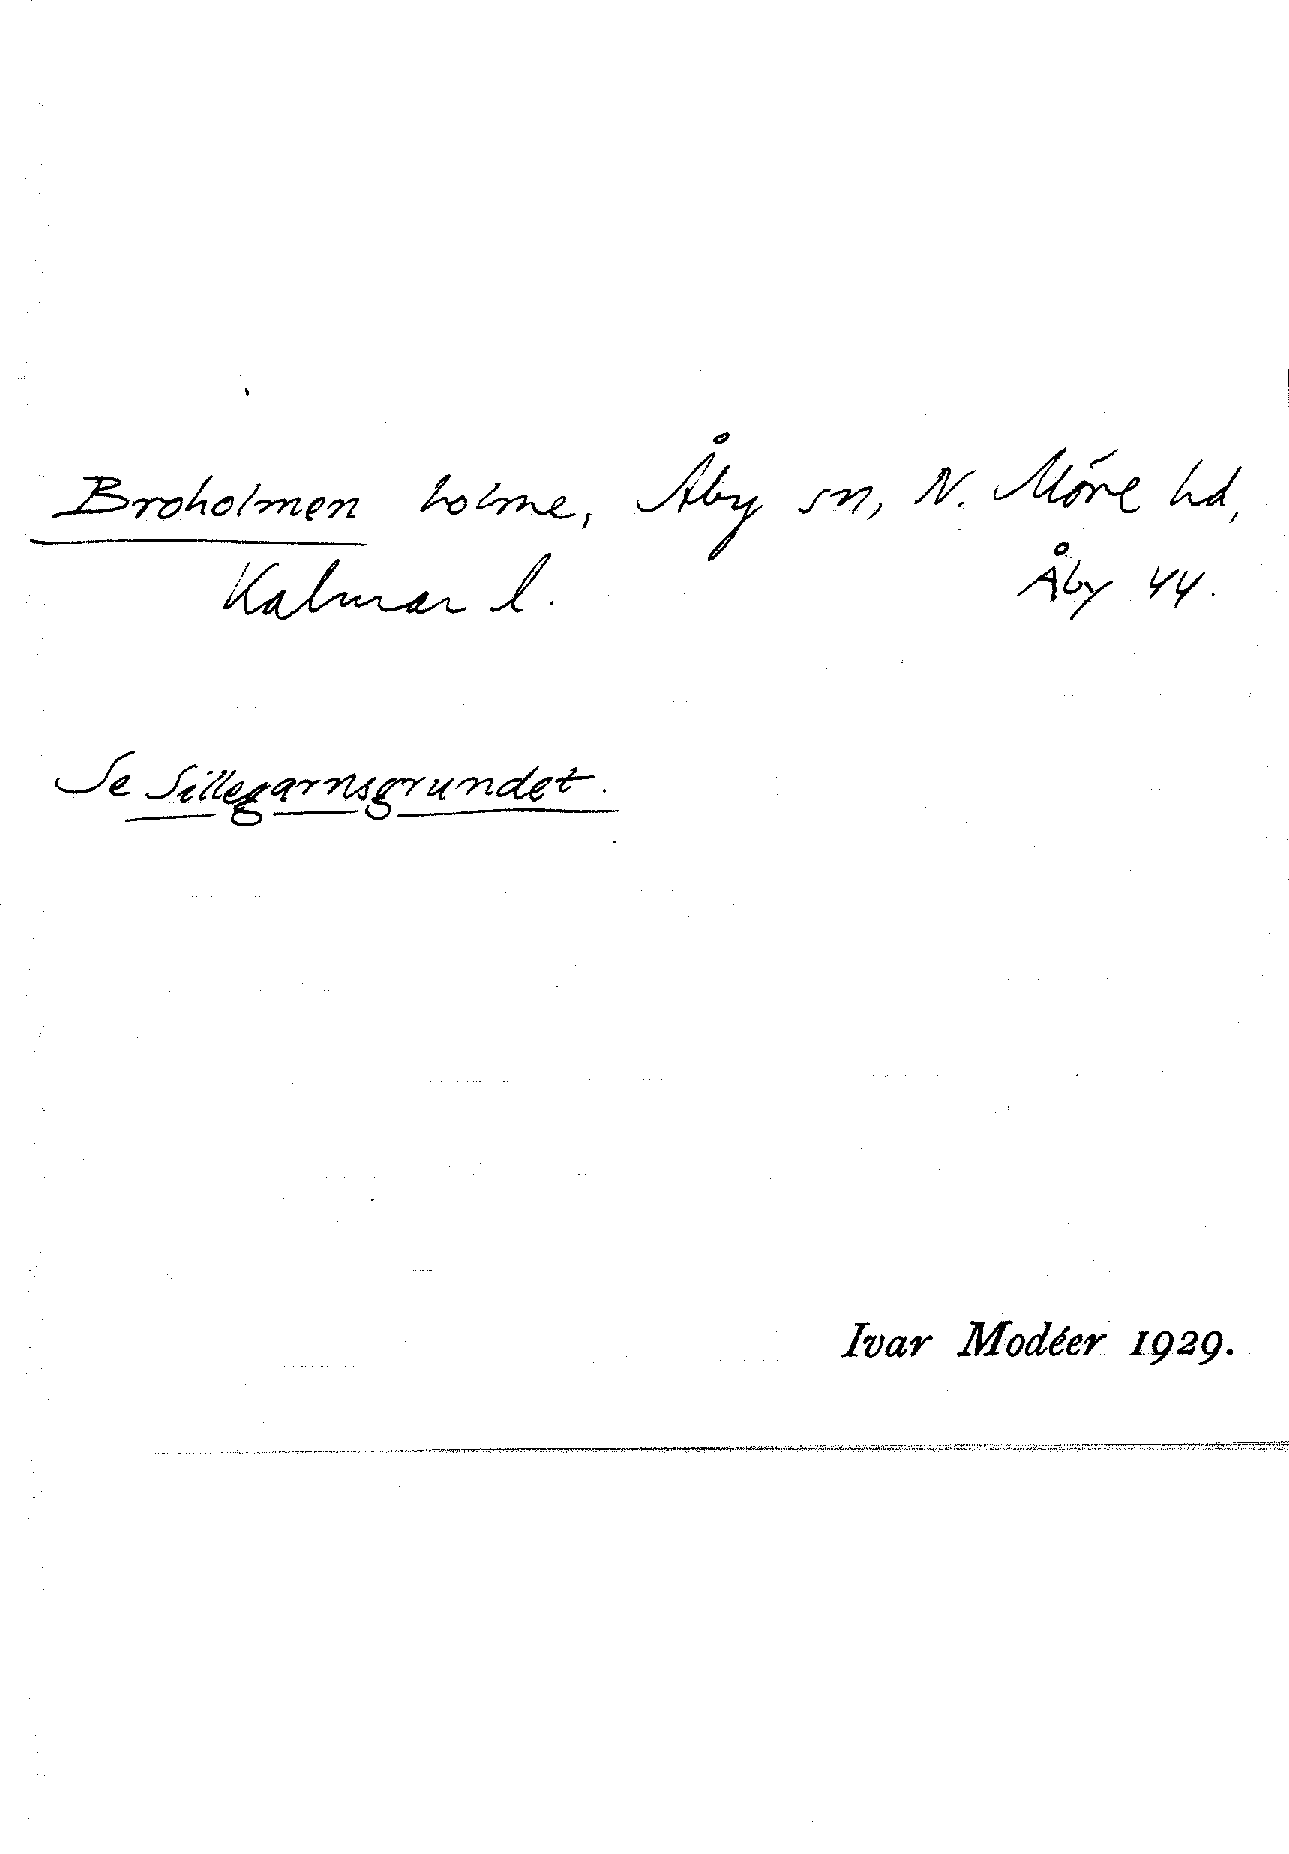 Broholmen holme, Åby sn, N. Möre hd,
Kalmar l. Åby 44.
Se Sillegarnsgrundet.
Ivar Modéer 1929.